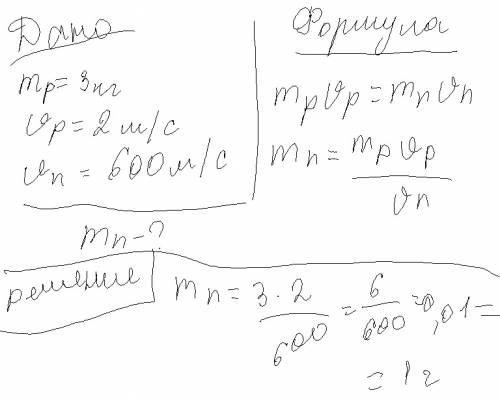 Дано
mр = 3кг
υр = 2 м/с
υп = 600 м/с
mп - ?
Формула
mрυр = mпυп
mп = mрυр / υп
решение
mп = 3·2 / 600 = 6 / 600 = 0,01 =
= 1 г